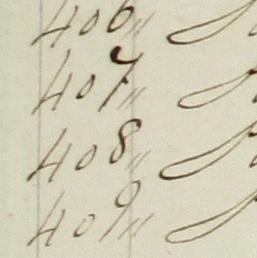 406 "
407 "
408 "
409 "